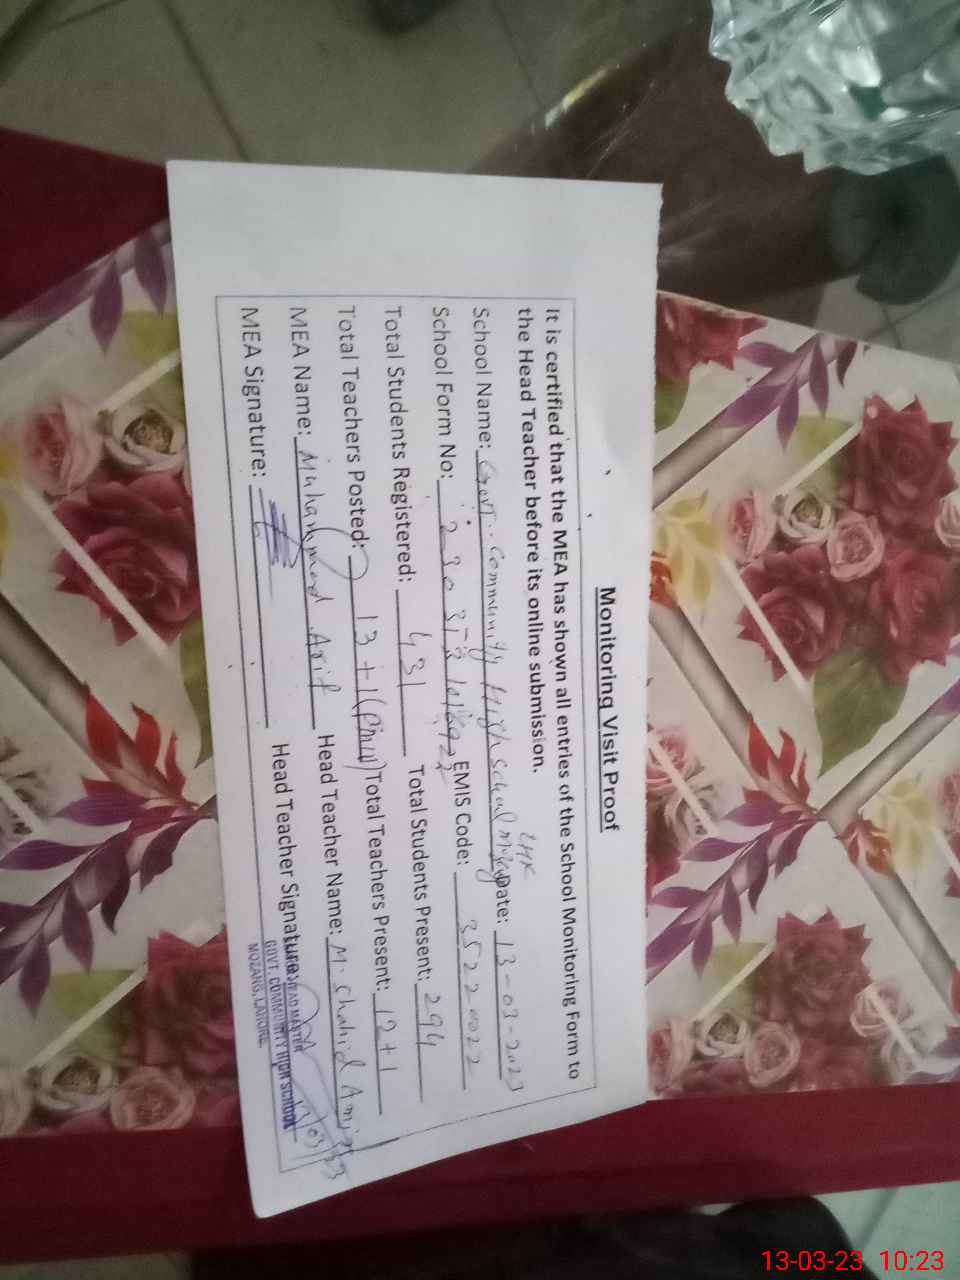 Monitoring Visit Proof
It is certified that the MEA has shown all entries of the School Monitoring Form to
the Head Teacher before its online submission.
School Name: Govt. Community High School Date: 13-03-2023
School Form No: EMIS Code:
Total Students Registered: 431 Total Students Present: 294
Total Teachers Posted: 13+1 Total Teachers Present: 12+1
MEA Name: Muhammad Head Teacher Name: M. Shahid Amin
MEA Signature: Head Teacher Signature:
HEAD MASTER
GOVT. COMMUNITY HIGH SCHOOL
MOZANG, LAHORE.
13-03-23 10:23